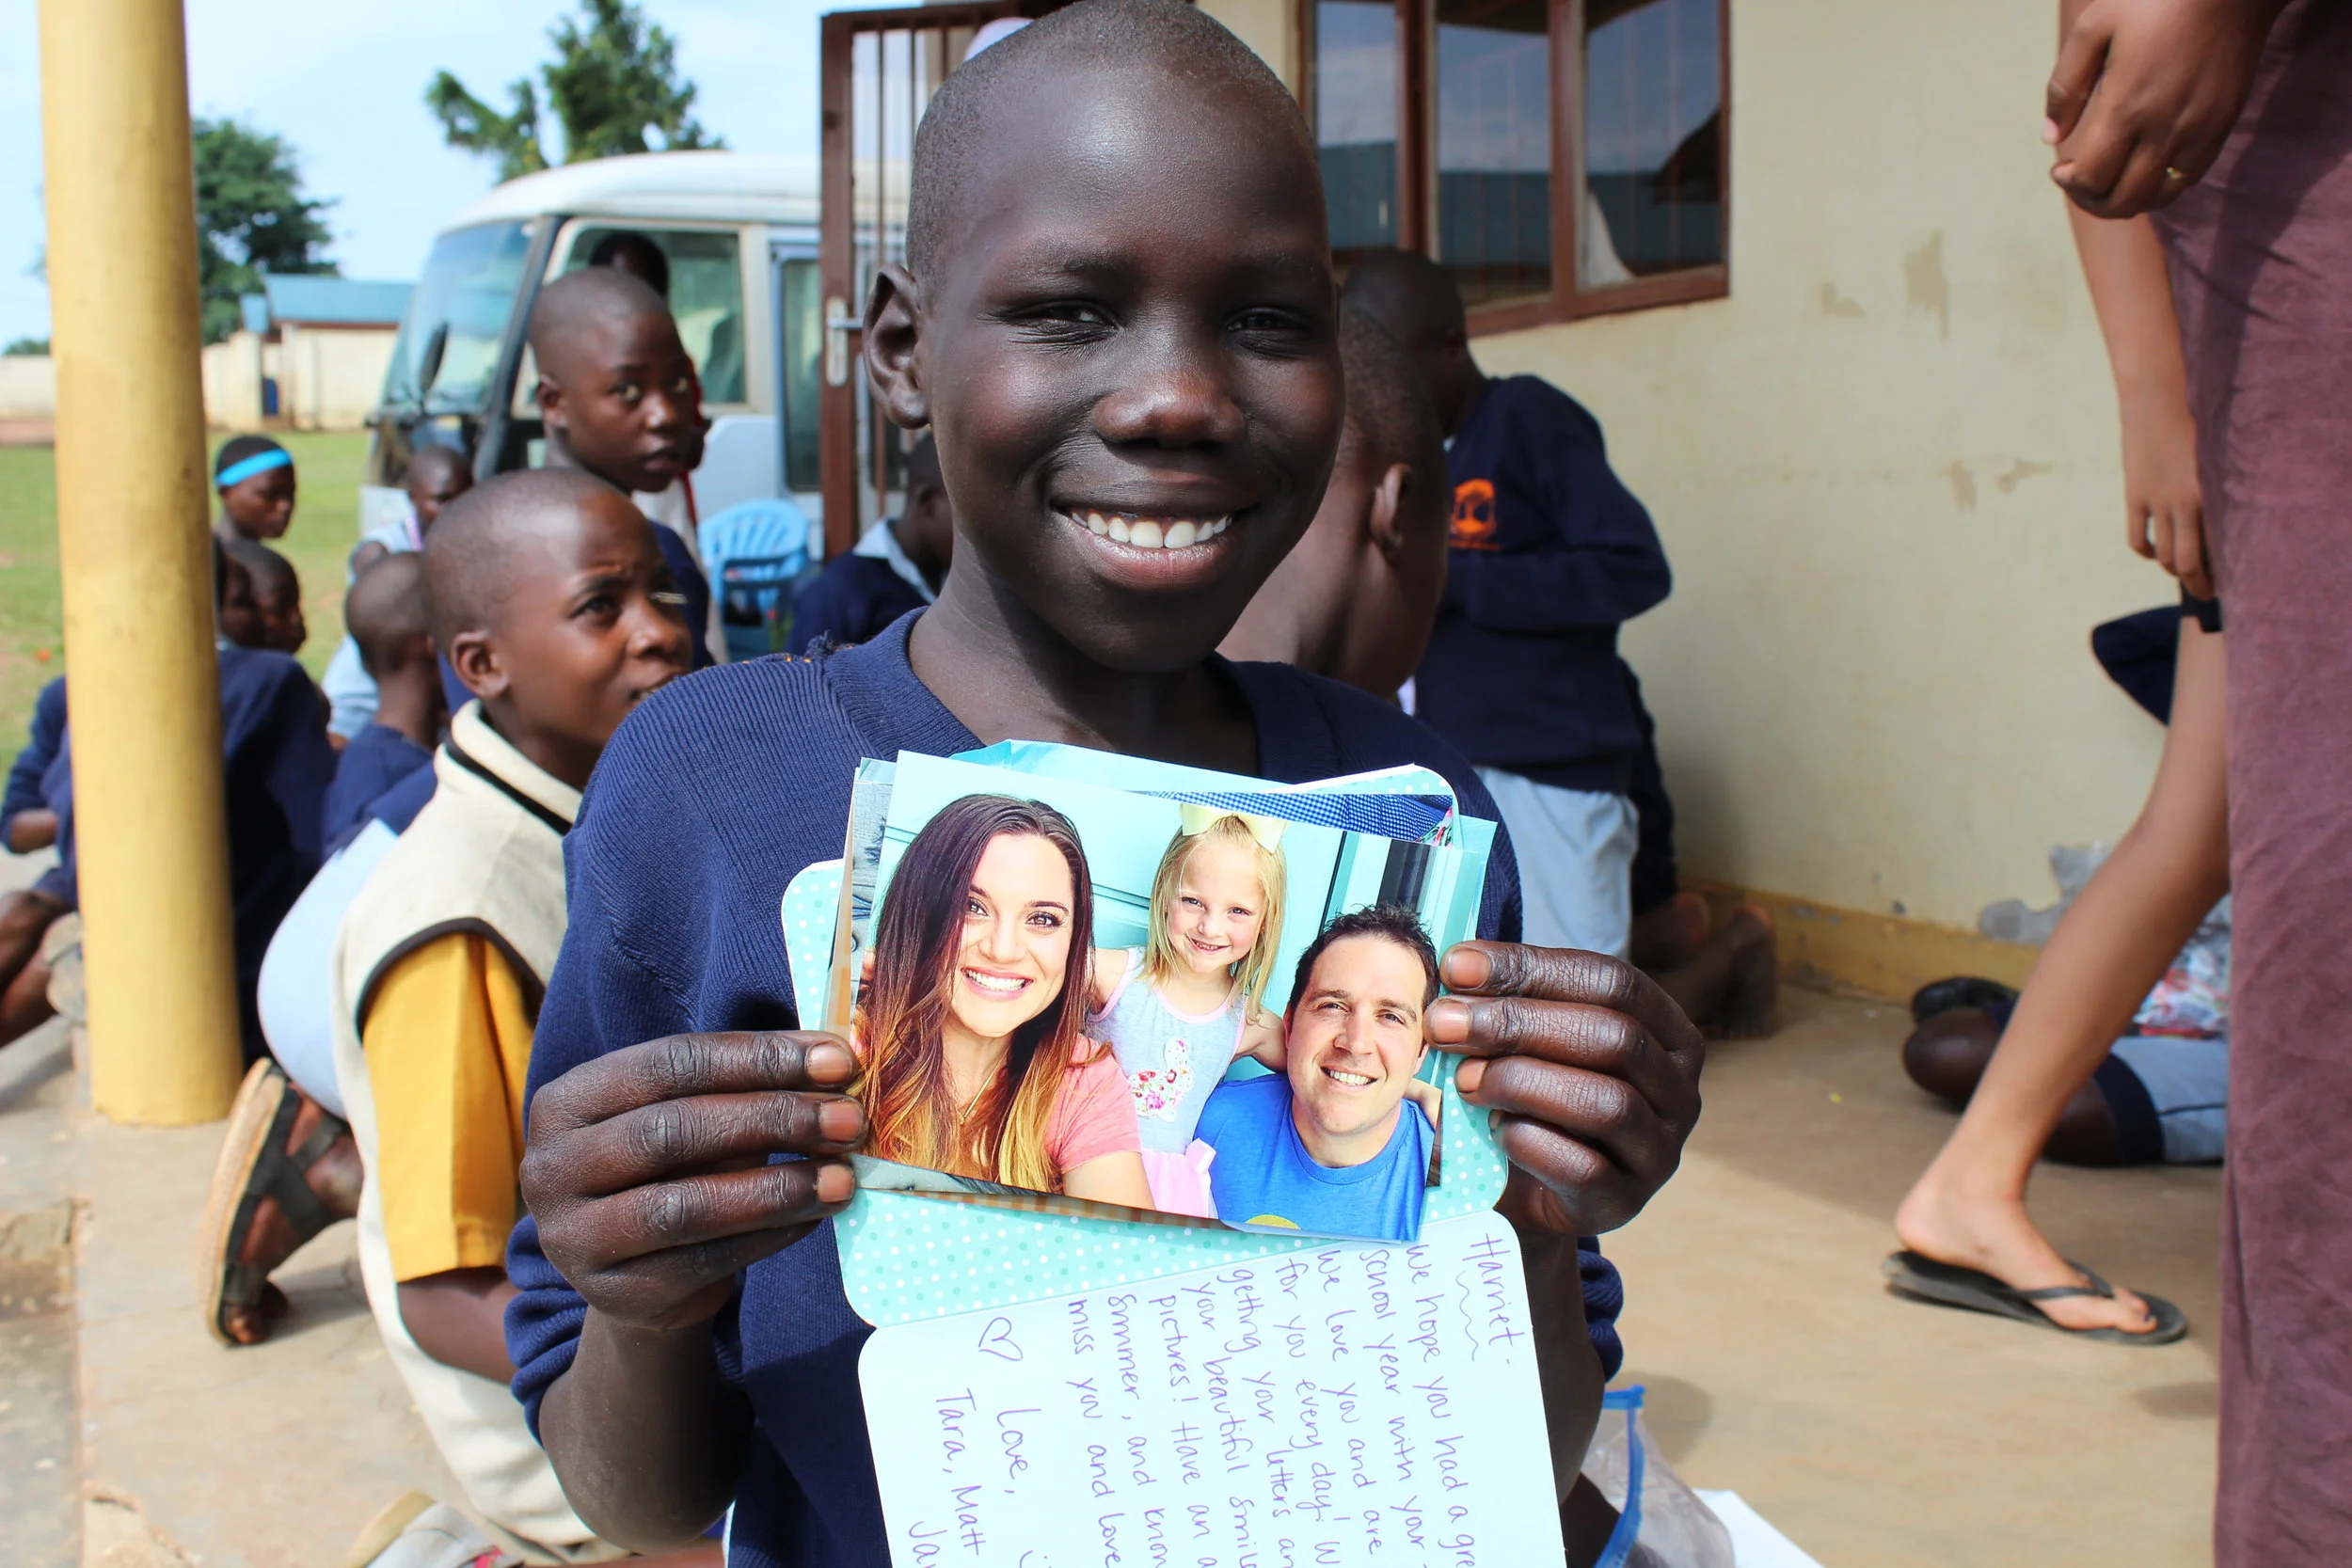 Harriet -
We hope you had a gre
school year with your
We love you and are
for you every day! W
getting your letters an
your beautiful smile
pictures! Have an a
summer, and know
miss you and love
♡ Love,
Tara, Matt
Ja